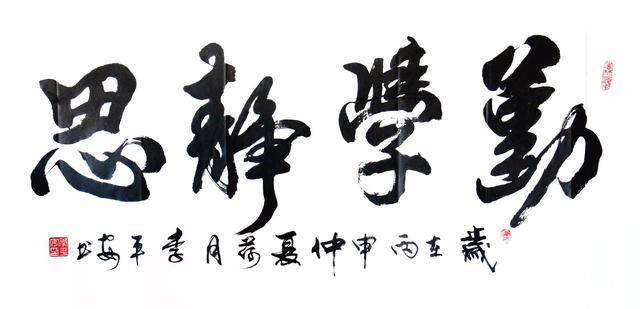 勤學靜思
歲在丙申仲夏荷月李平安书